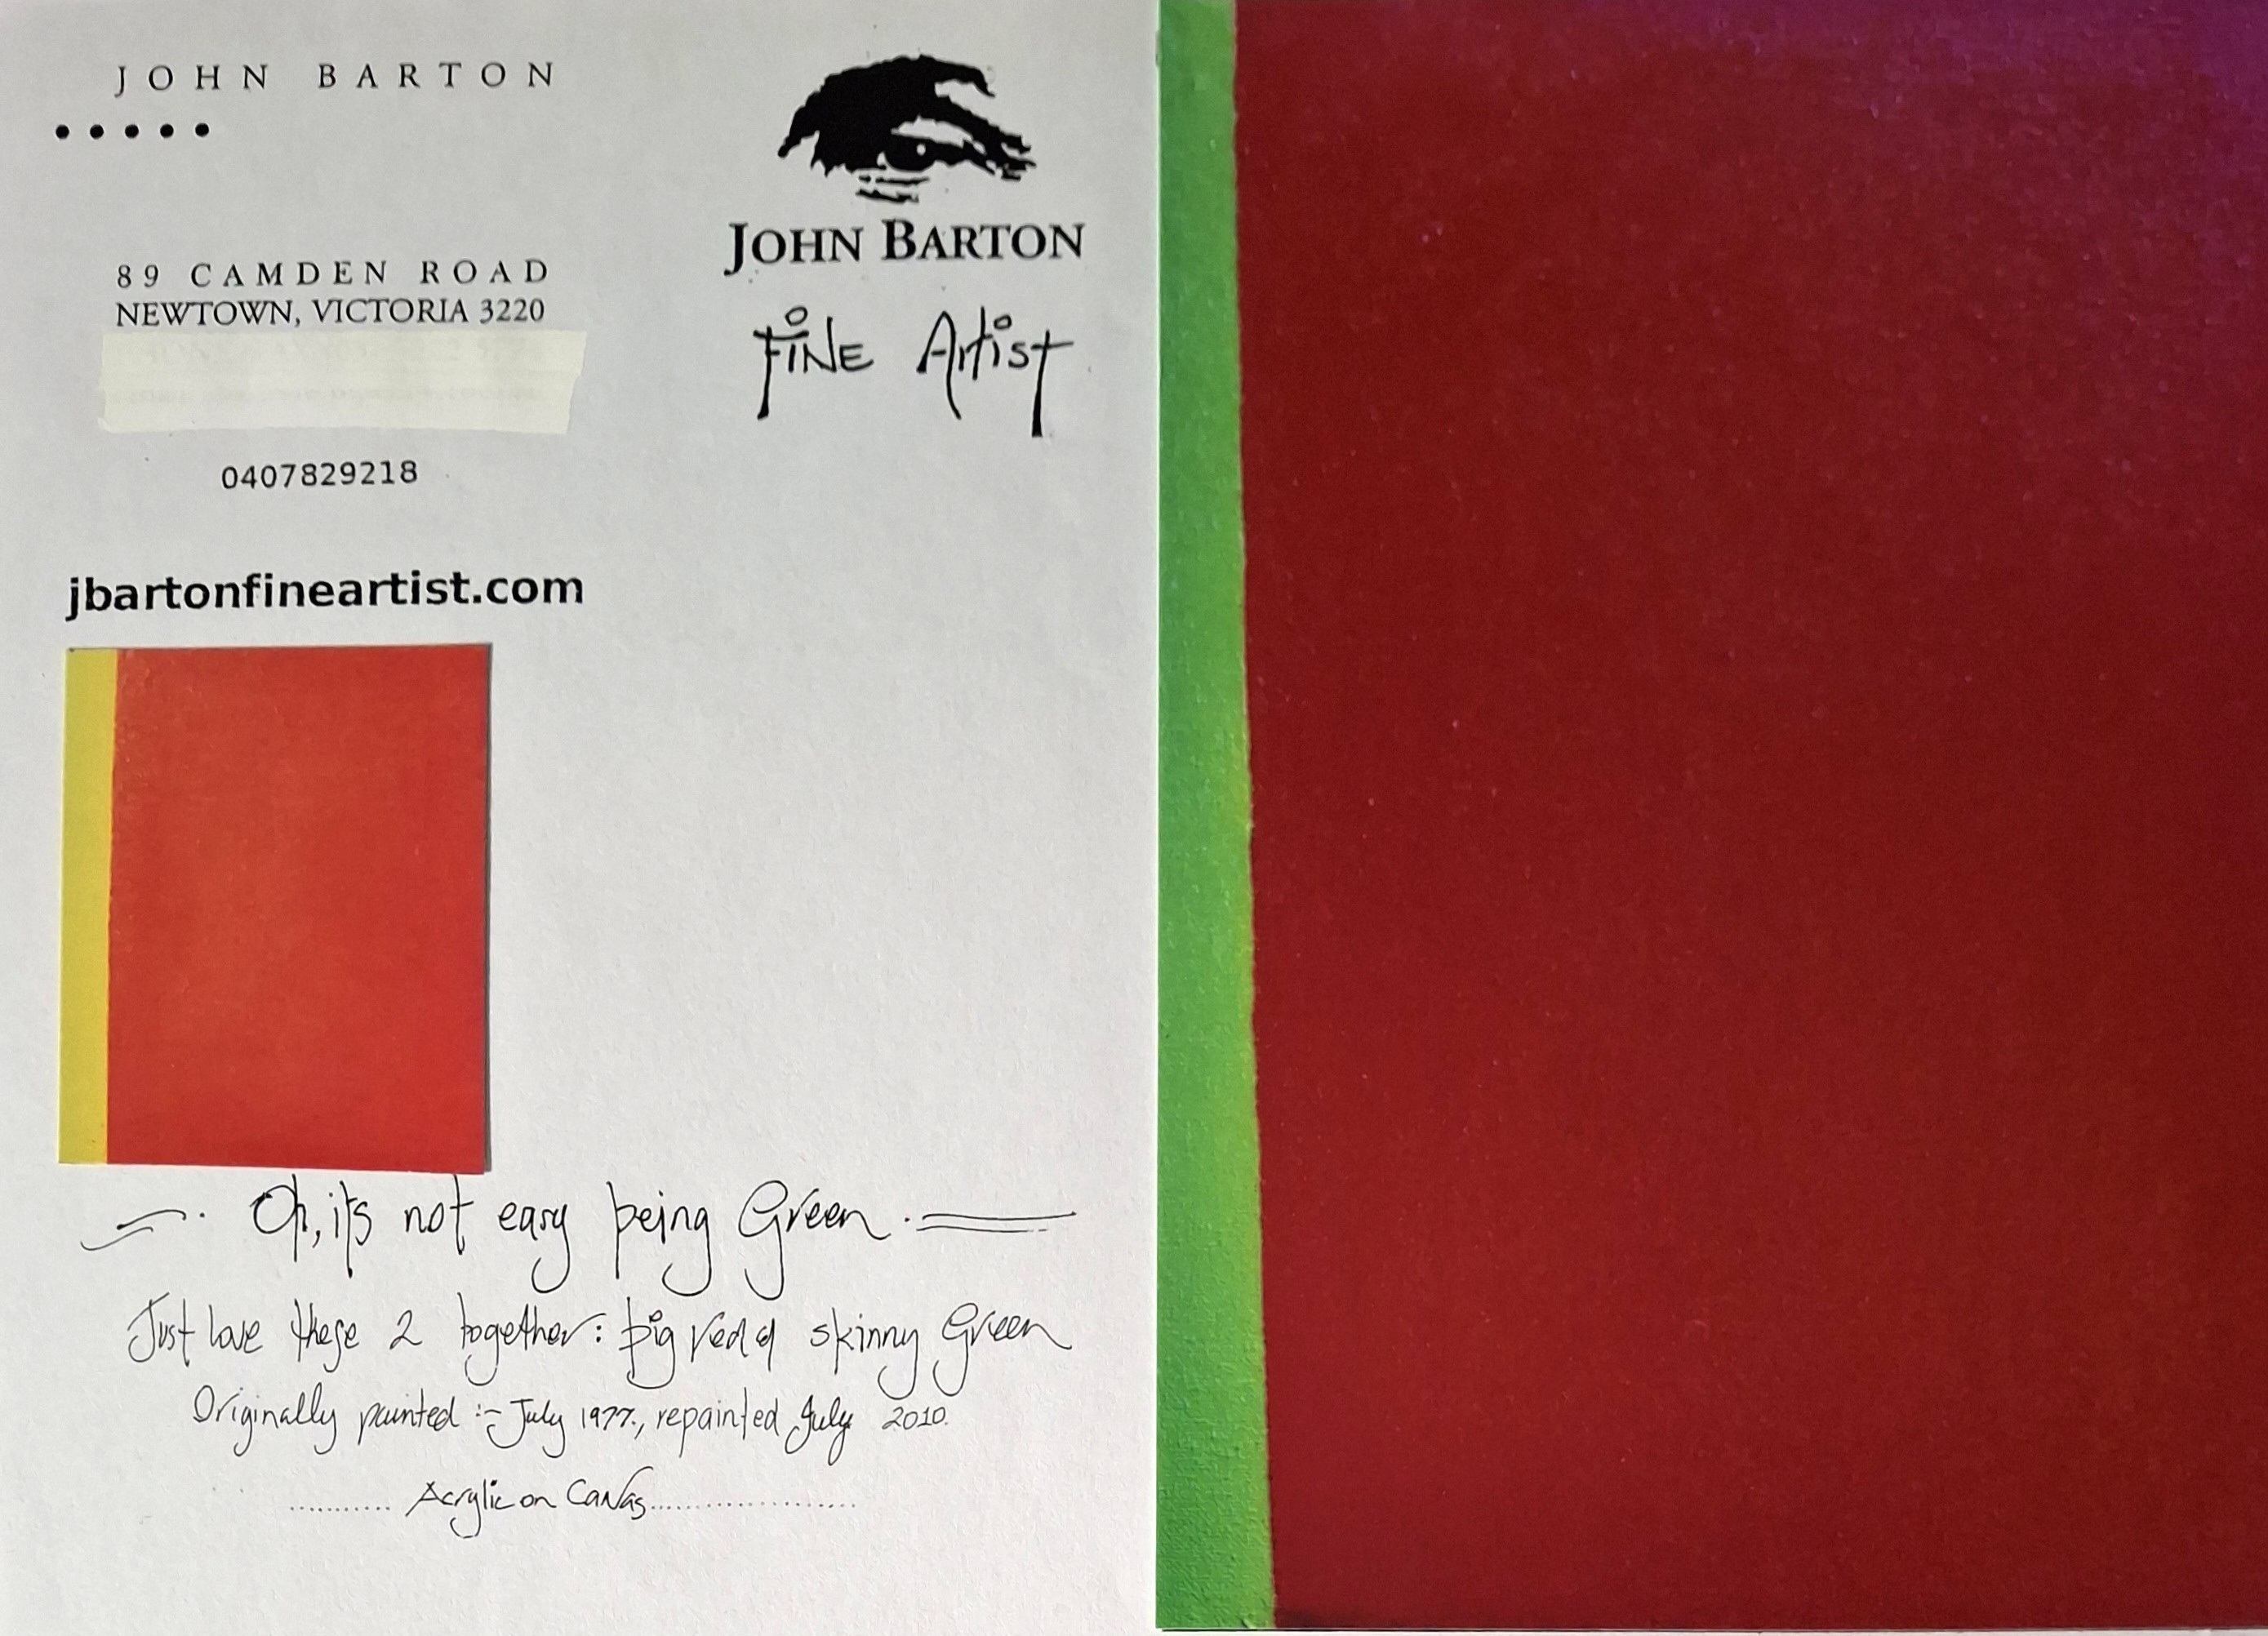 JOHN BARTON
89 CAMDEN ROAD
NEWTOWN, VICTORIA 3220
0407829218
jbartonfineartist.com
JOHN BARTON
FINE Artist
Oh, it's not easy being Green
Just love these 2 together: big red & skinny Green
Originally painted :- July 1977., repainted July 2010.
........... Acrylic on Canvas.....................